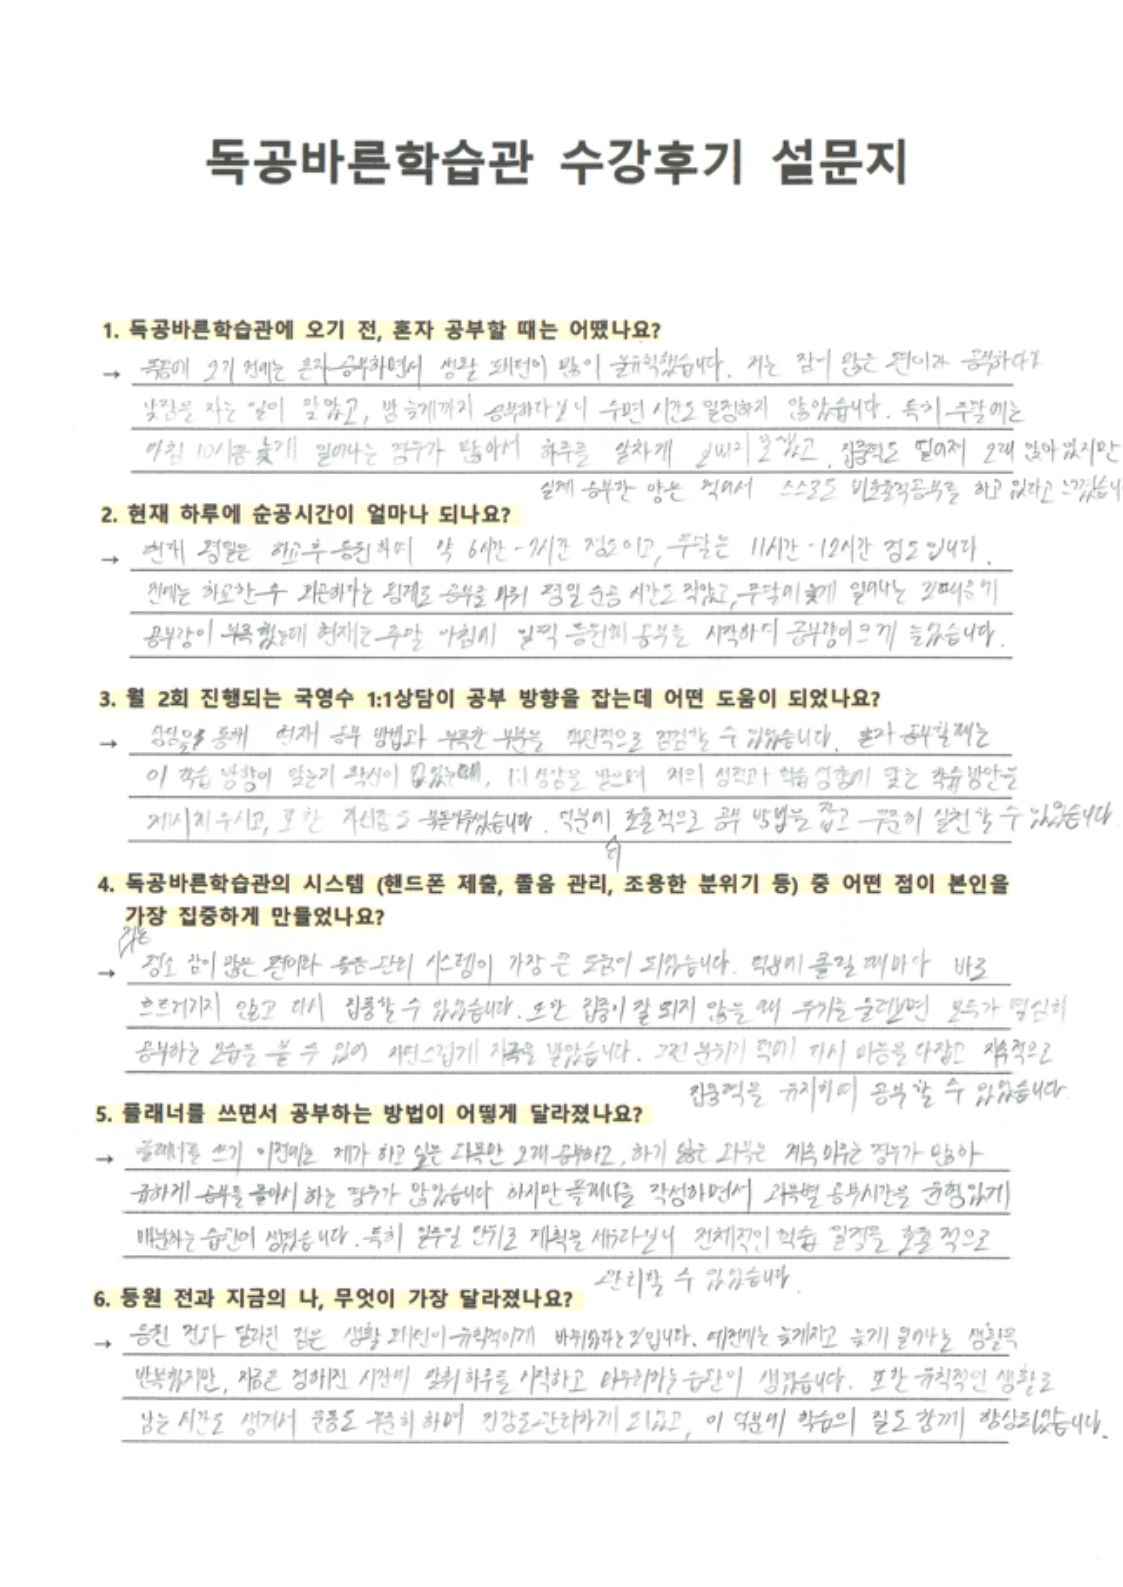 독공바른학습관 수강후기 설문지
1. 독공바른학습관에 오기 전, 혼자 공부할 때는 어땠나요?
→ 독공에 오기 전에는 혼자 공부하면서 생활 패턴이 많이 불규칙했습니다. 저는 잠이 많은 편이라 공부하다가
낮잠을 자는 일이 잦았고, 밤 늦게까지 공부하다보니 수면 시간도 일정하지 않았습니다. 특히 주말에는
아침 10시쯤 늦게 일어나는 경우가 많아서 하루를 알차게 보내지 못했고, 집중력도 떨어져 오래 앉아 있지만
실제 공부한 양은 적어서 스스로도 비효율적공부를 하고 있다고 느꼈습니
2. 현재 하루에 순공시간이 얼마나 되나요?
→ 현재 평일은 하교 후 등원하여 약 6시간-7시간 정도이고, 주말은 11시간-12시간 정도입니다.
전에는 하교한 후 피곤하다는 핑계로 공부를 미뤄 평일 순공 시간도 적었고, 주말에 늦게 일어나는 때문에
공부량이 부족했는데 현재는 주말 아침에 일찍 등원해 공부를 시작하여 공부량이 크게 늘었습니다.
3. 월 2회 진행되는 국영수 1:1상담이 공부 방향을 잡는데 어떤 도움이 되었나요?
→ 상담을 통해 현재 공부 방법과 부족한 부분을 객관적으로 점검할 수 있었습니다. 혼자 공부할 때는
이 학습 방향이 맞는지 확신이 없었는데, 1:1 상담을 받으며 저의 성적과 학습 상황에 맞는 학습 방안을
제시해 주시고, 또한 자신감도 북돋아주셨습니다. 덕분에 더 효율적으로 공부 방법을 잡고 꾸준히 실천할 수 있었습니다
4. 독공바른학습관의 시스템 (핸드폰 제출, 졸음 관리, 조용한 분위기 등) 중 어떤 점이 본인을
가장 집중하게 만들었나요?
저는
→ 평소 잠이 많은 편이라 졸음 관리 시스템이 가장 큰 도움이 되었습니다. 덕분에 졸릴 때마다 바로
흐트러지지 않고 다시 집중할 수 있었습니다. 또한 집중이 잘 되지 않을 때 주위를 둘러보면 모두가 열심히
공부하는 모습을 볼 수 있어 자연스럽게 자극을 받았습니다. 그런 분위기 덕에 다시 마음을 다잡고 지속적으로
집중력을 유지하여 공부할 수 있었습니다.
5. 플래너를 쓰면서 공부하는 방법이 어떻게 달라졌나요?
→ 플래너를 쓰기 이전에는 제가 하고 싶은 과목만 오래 공부하고, 하기 싫은 과목은 계속 미루는 경우가 많아
급하게 공부를 몰아서 하는 경우가 많았습니다 하지만 플래너를 작성하면서 과목별 공부시간을 균형있게
배분하는 습관이 생겼습니다. 특히 일주일 단위로 계획을 세우다보니 전체적인 학습 일정을 효율적으로
관리할 수 있었습니다.
6. 등원 전과 지금의 나, 무엇이 가장 달라졌나요?
→ 등원 전과 달라진 점은 생활 패턴이 규칙적이게 바뀌었다는 것입니다. 예전에는 늦게자고 늦게 일어나는 생활을
반복했지만, 지금은 정해진 시간에 맞춰 하루를 시작하고 마무리하는 습관이 생겼습니다. 또한 규칙적인 생활로
남는 시간도 생겨서 운동도 꾸준히 하며 건강도 관리하게 되었고, 이 덕분에 학습의 질도 함께 향상되었습니다.